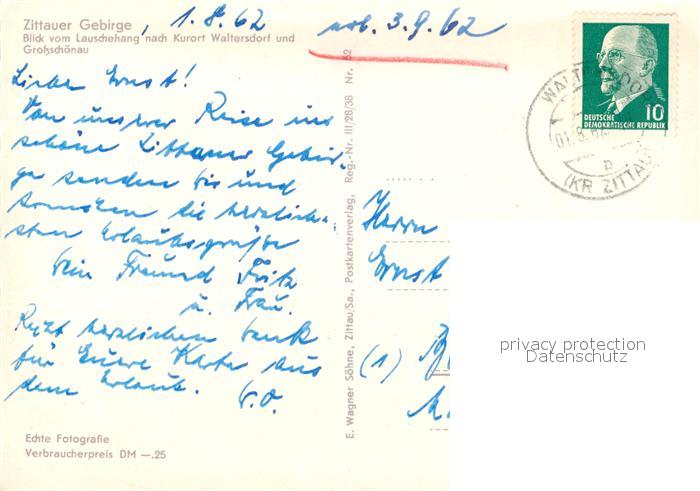 Zittauer Gebirge
Blick vom Lauschehang nach Kurort Waltersdorf und
Großschönau
, 1.8.62
erh. 3.9.62
Liebe Ernst!
Von unserer Reise ins
schöne Zittauer Gebir-
ge senden wir und
die herzlich-
sten Urlaubsgrüße
Dein Freund Fritz
u. Frau.
Recht herzlichen Dank
für Euere Karte aus
dem Urlaub. D.O.
Echte Fotografie
Verbraucherpreis DM —.25
E. Wagner Söhne, Zittau/Sa., Postkartenverlag, Reg.-Nr. III/28/38 Nr. 62
Herrn
Ernst
(1)
DEUTSCHE
DEMOKRATISCHE REPUBLIK
10
WALTERSDORF
(KR ZITTAU)
privacy protection
Datenschutz